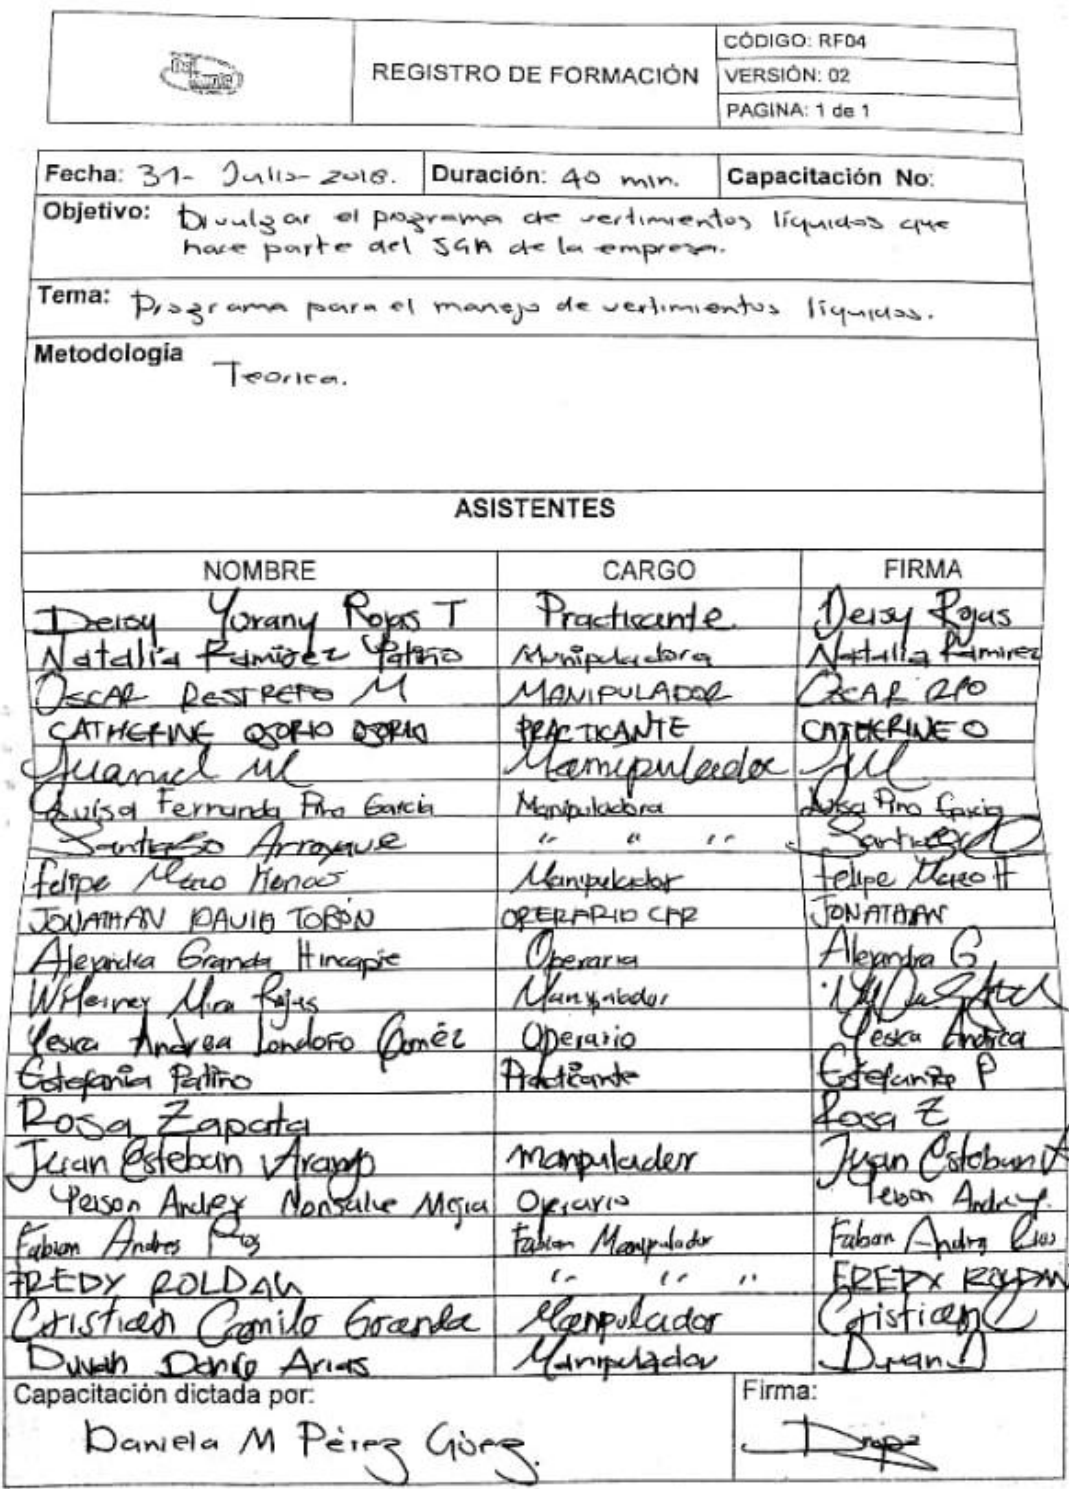 REGISTRO DE FORMACIÓN
CÓDIGO: RF04
VERSIÓN: 02
PAGINA: 1 de 1
Fecha: 31- Julio- 2018. Duración: 40 min. Capacitación No:
Objetivo: Divulgar el programa de vertimientos líquidos que
hace parte del SGA de la empresa.
Tema: Programa para el manejo de vertimientos líquidos.
Metodología
Teorica.
ASISTENTES
NOMBRE CARGO FIRMA
Deisy Yorany Rojas T Practicante Deisy Rojas
Natalia Ramirez Patiño Manipuladora Natalia Ramirez
OSCAR RESTREPO M MANIPULADOR OSCAR RPO
CATHERINE OSORIO OSORIO PRACTICANTE CATHERINE O
Juanuel Manipulador
Luisa Fernanda Pino Garcia Manipuladora Luisa Pino Garcia
Santiago Arroyave " " " Santiago
felipe Mazo Manipulador felipe Mazo H
JONATHAN DAVID TOBÓN OPERARIO JONATHAN
Alejandra Granda Hincapie Operaria Alejandra G
Wileiner Mira Rojas Manipulador
Yesica Andrea Londoño Goméz Operario Yesica Andrea
Estefania Patiño Practicante Estefania P
Rosa Zapata Rosa Z
Juan Esteban Arango manipulador Juan Esteban A
Yeison Andrey Monsalve Mejia Operario Yeison Andrey
Fabian Andres Rios Fabian Manipulador Fabian Andres Rios
FREDY ROLDAN " " " FREDY ROLDAN
Cristian Camilo Granda Manipulador Cristian C
Duvan Arias Manipulador Duvan D
Capacitación dictada por: Firma:
Daniela M Pérez